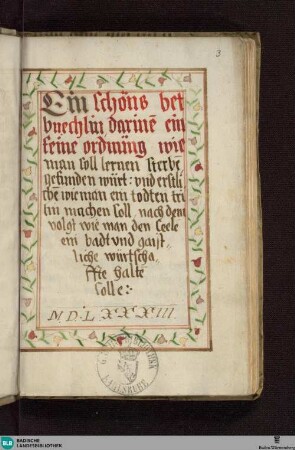 3
Ein schöns bet
buechlin darinē ein
feine ordnüng wie
man soll lernen sterbē
gefunden würt: vnd erstli-
che wie man ein todten
lin machen soll, nach dem
volgt wie man der Seele
ein badt vnd gaist-
liche würtscha-
fft halte
solle:-
M.D.LXXXIII.
KARLSRUHE
BLB
BADISCHE
LANDESBIBLIOTHEK
Baden-Württemberg